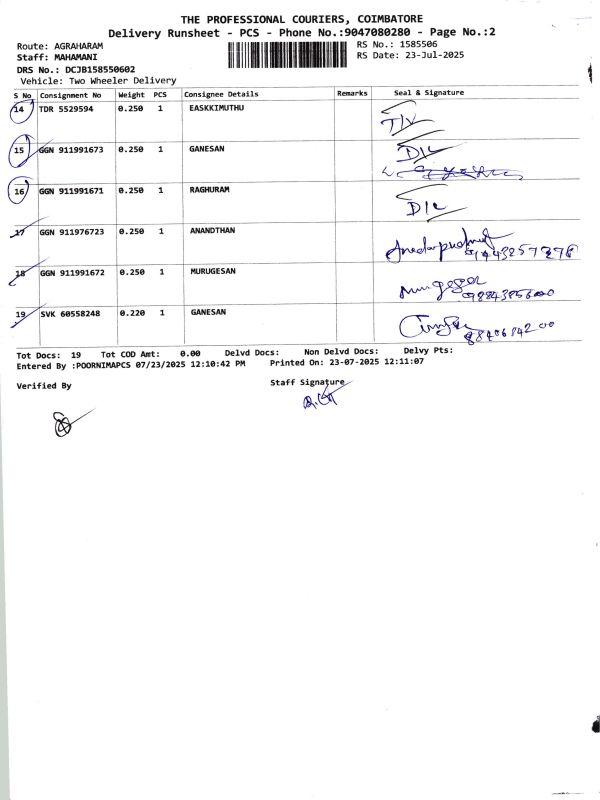 THE PROFESSIONAL COURIERS, COIMBATORE
Delivery Runsheet - PCS - Phone No.:9047080280 - Page No.:2
Route: AGRAHARAM
RS No.: 1585506
Staff: MAHAMANI
RS Date: 23-Jul-2025
DRS No.: DCJB158550602
Vehicle: Two Wheeler Delivery
S No Consignment No Weight PCS Consignee Details Remarks Seal & Signature
14 TDR 5529594 0.250 1 EASKKIMUTHU
15 GGN 911991673 0.250 1 GANESAN D/L
16 GGN 911991671 0.250 1 RAGHURAM D/L
17 GGN 911976723 0.250 1 ANANDTHAN
18 GGN 911991672 0.250 1 MURUGESAN
19 SVK 60558248 0.220 1 GANESAN
Tot Docs: 19 Tot COD Amt: 0.00 Delvd Docs: Non Delvd Docs: Delvy Pts:
Entered By :POORNIMAPCS 07/23/2025 12:10:42 PM Printed On: 23-07-2025 12:11:07
Verified By
Staff Signature